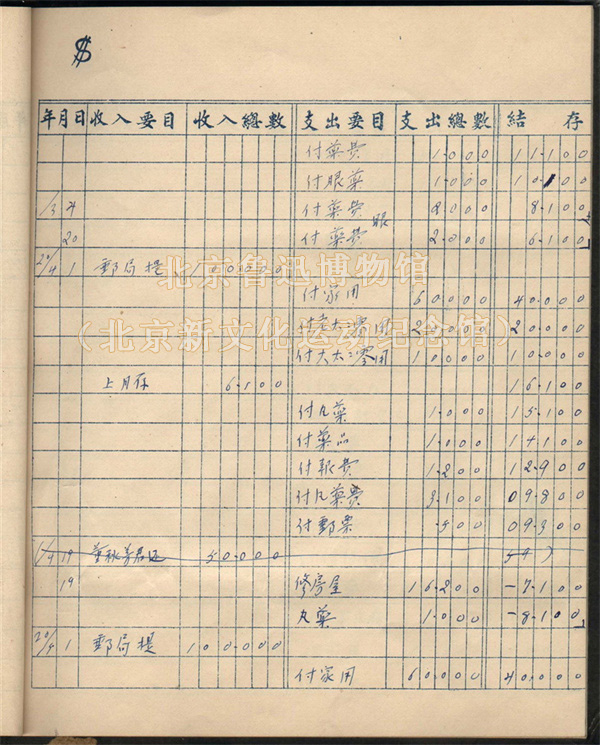 $
年月日 收入要目 收入總數 支出要目 支出總數 結存
付藥費 1.000 11.100
付眼藥 1.000 10.100
/3 4 付藥費 2.000 8.100
眼
20 付藥費 2.000 6.100
20/4 1 郵局提 100.000
付家用 60.000 40.000
付老太太零用 20.000 20.000
付大太太零用 10.000 10.000
上月存 6.100 16.100
付丸藥 1.000 15.100
付藥品 1.000 14.100
付報費 1.200 12.900
付丸藥費 3.100 09.800
付郵票 .500 09.300
19 50.000
19 修房屋 16.200 -7.100
丸藥 1.000 -8.100
20/4 1 郵局提 100.000
付家用 60.000 40.000
北京鲁迅博物馆
（北京新文化运动纪念馆）